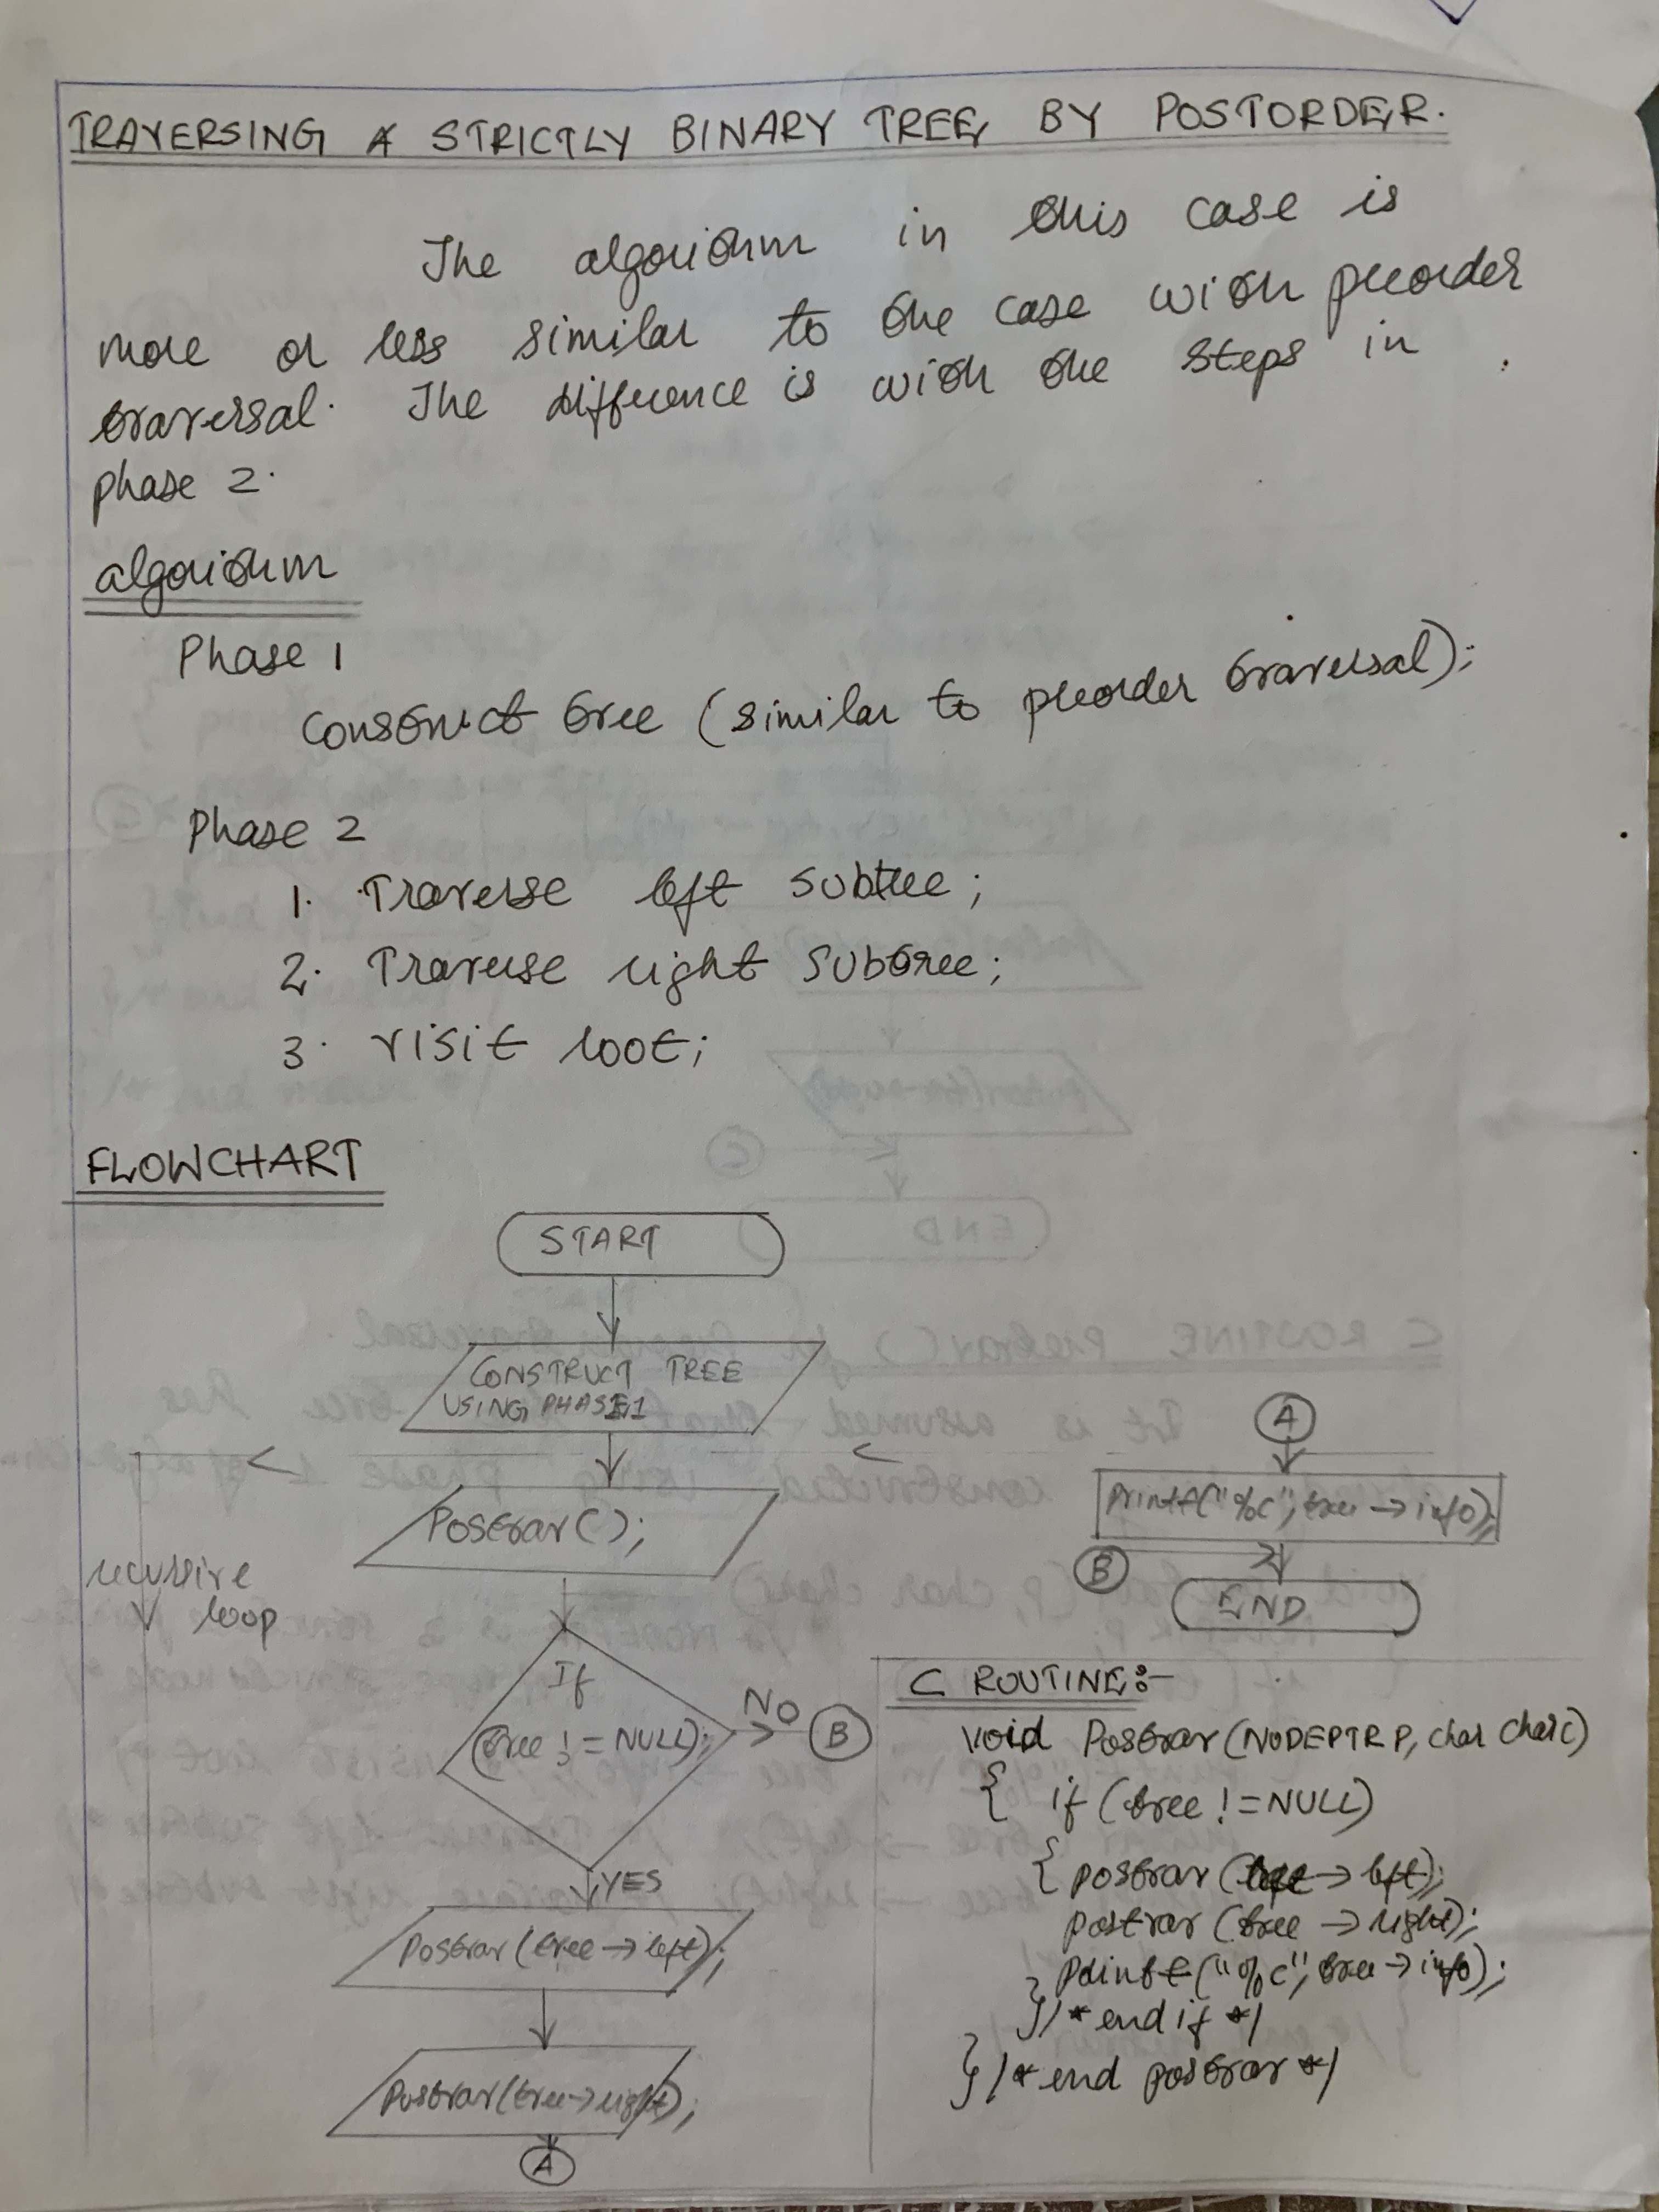 TRAVERSING A STRICTLY BINARY TREE BY POSTORDER.
The algorithm in this case is
more or less similar to the case with preorder
traversal. The difference is with the steps in
phase 2.
algorithm
Phase 1
construct tree (similar to preorder traversal);
Phase 2
1. Traverse left subtree;
2. Traverse right subtree;
3. visit root;
FLOWCHART
START
CONSTRUCT TREE
USING PHASE 1
Postrav();
recursive
loop
If
(tree != NULL);
NO
B
YES
Postrav(tree->left);
Postrav(tree->right);
A
A
printf("%c", tree->info);
B
END
C ROUTINE:-
void Postrav(NODEPTR P, char charc)
{ if (tree != NULL)
{ postrav (tree->left);
postrav (tree->right);
printf("%c", tree->info);
} /* end if */
} /* end postrav */